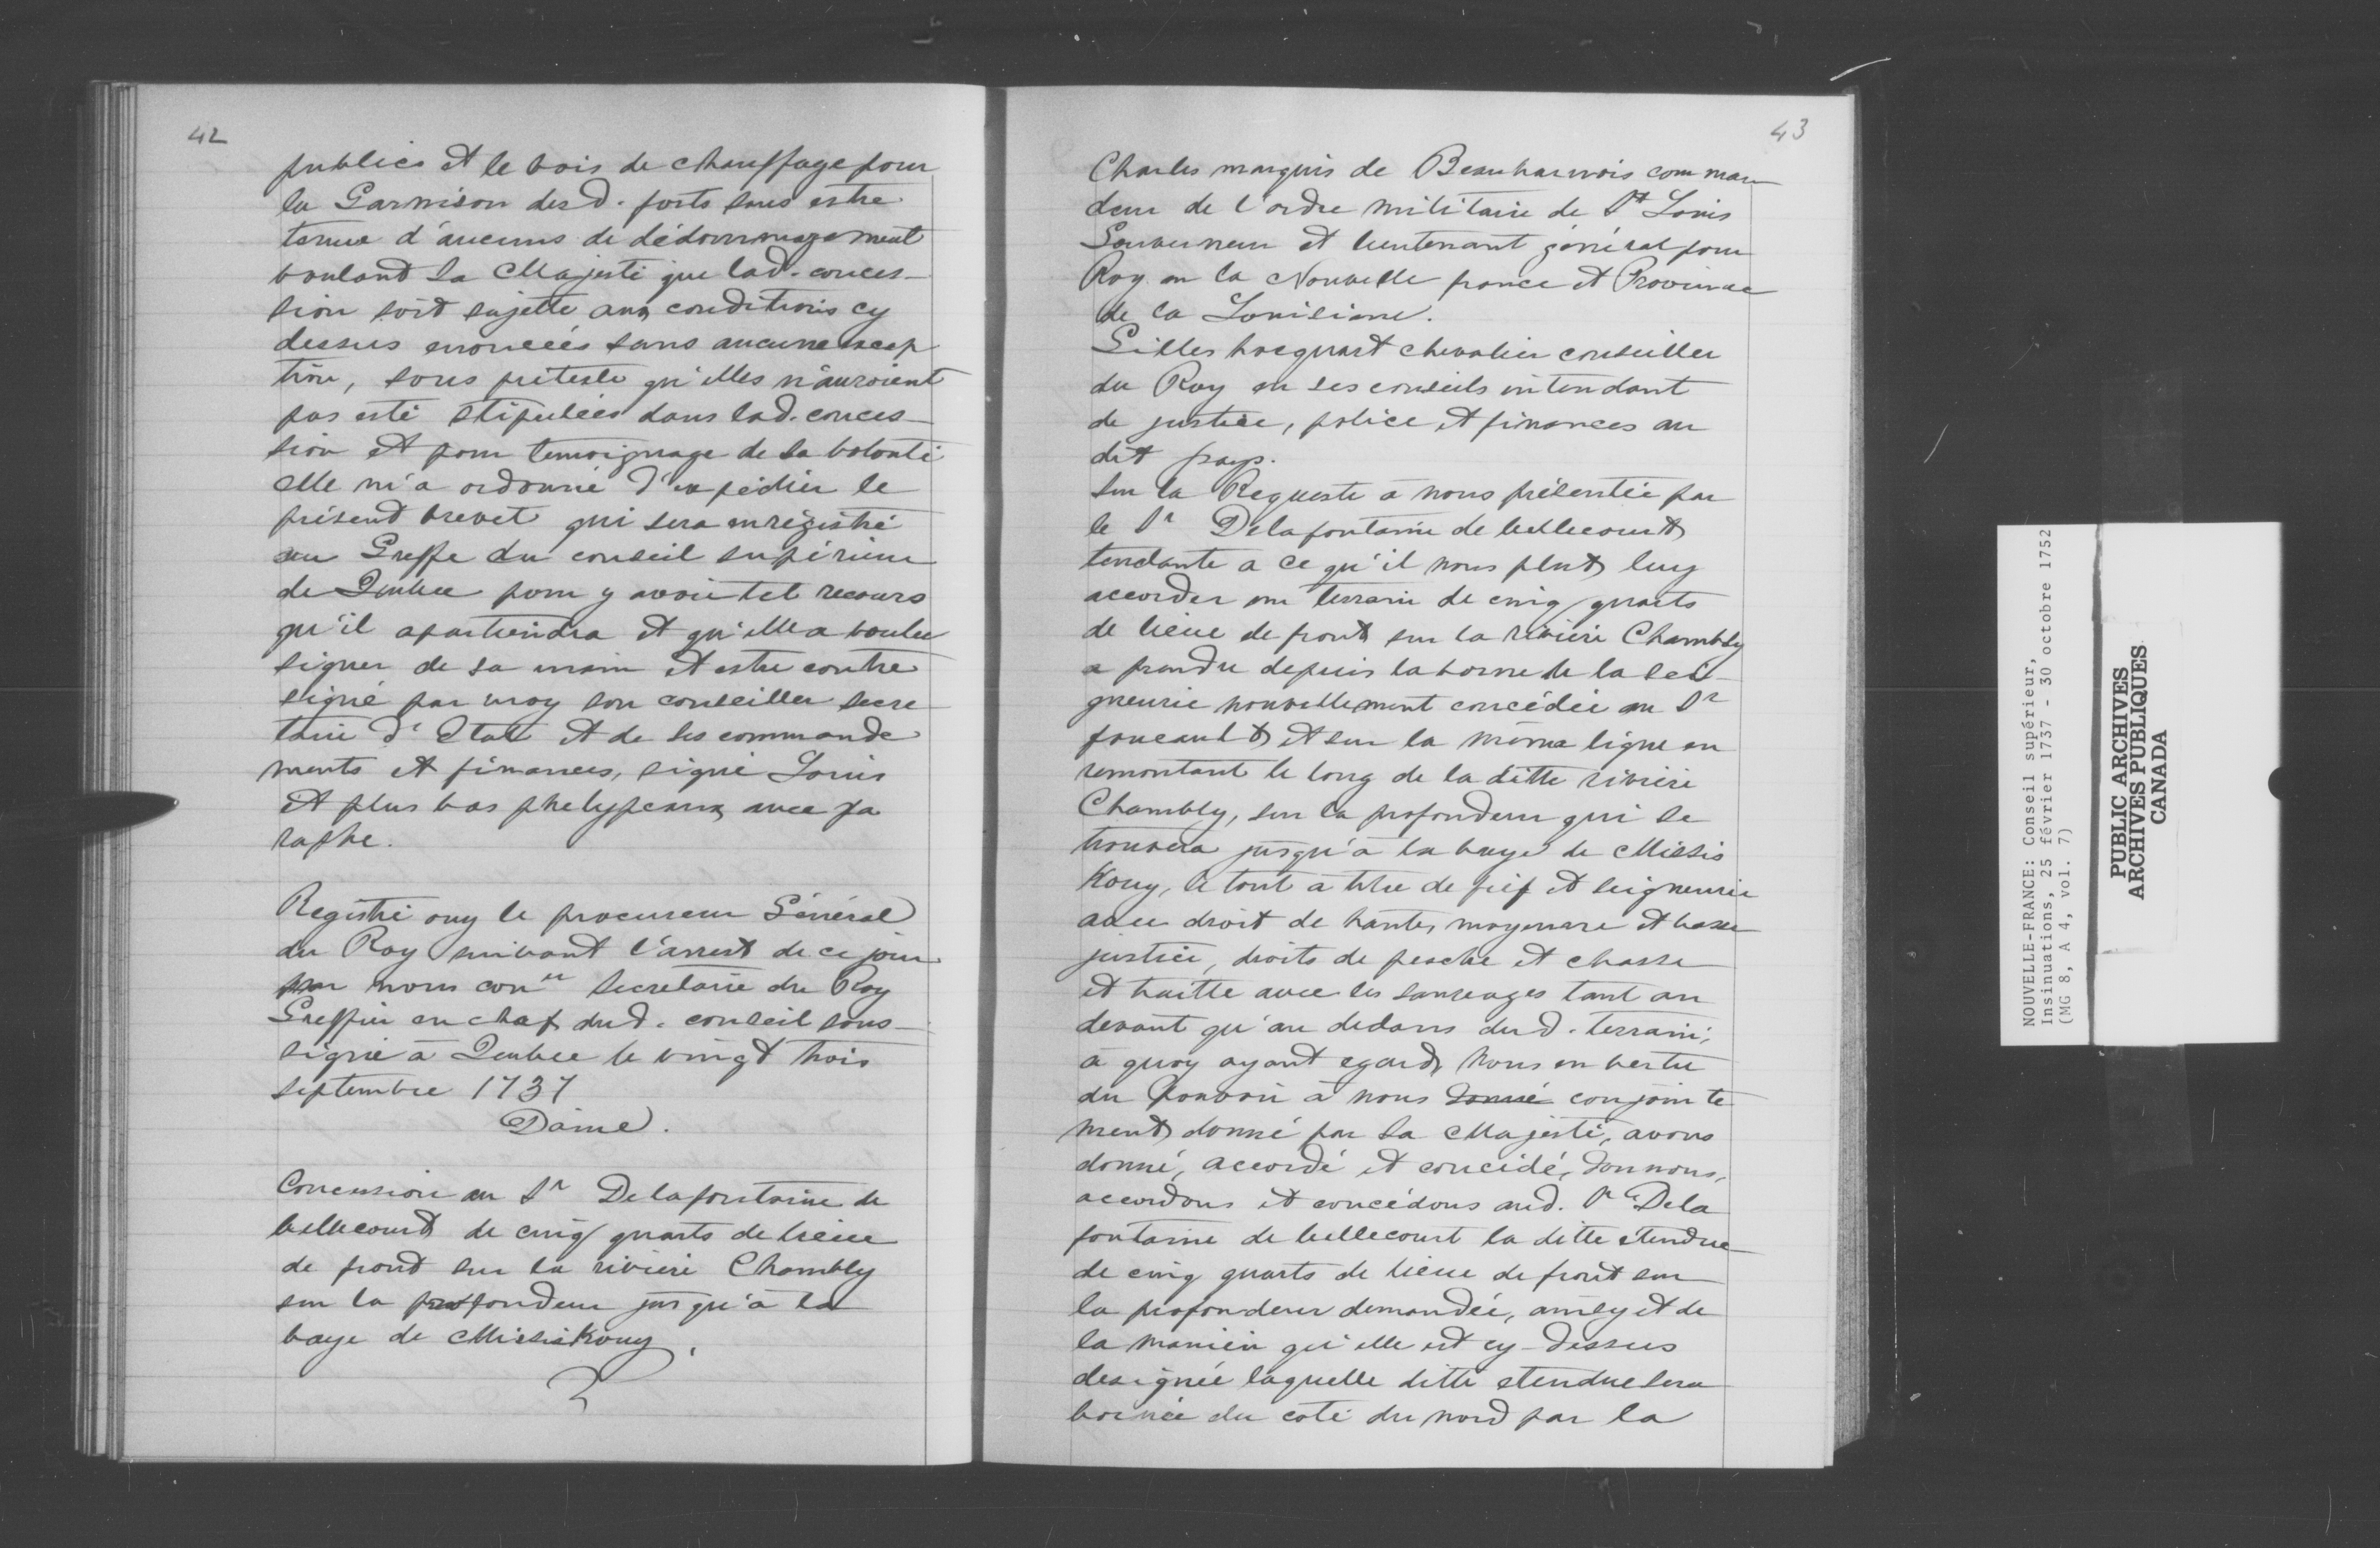 42
publics et le bois de chauffage pour
la Garnison desd. forts sans estre
tenue d'aucuns de dédommagement
voulant Sa Majesté que lad. conces-
sion soit sujette aux conditions cy
dessus enoncées sans aucune excep
tion, sous prétexte qu'elles n'auroient
pas esté stipulées dans lad. conces-
sion et pour temoignage de sa volonté
elle m'a ordonné d'expédier le
présent brevet qui sera enrégistré
au Greffe du conseil supérieur
de Quebec pour y avoir tel recours
qu'il apartiendra et qu'elle a voulu
signer de sa main et estre contre
signé par moy son conseiller secre
taire d'Etat et de ses commande
ments et finances, signé Louis
et plus bas phelypeaux avec pa
raphe.
Registré ouy le procureur Général
du Roy suivant l'arrest de ce jour
par nous coner Secretaire du Roy
Greffier en chef dud. conseil sous-
signé à Quebec le vingt trois
septembre 1737
Daine.
Concession au Sr Delafontaine de
bellecourt de cinq quarts de lieue
de front sur la riviere Chambly
sur la profondeur jusqu'à la
baye de Missiskouy.
43
Charles marquis de Beauharnois comman
deur de l'ordre militaire de St Louis
Gouverneur et lieutenant général pour
Roy en la Nouvelle france et Province
de la Louisiane.
Gilles hocquart chevalier conseiller
du Roy en ses conseils intendant
de justice, police et finances au
dit pays.
Sur la Requeste à nous présentée par
le Sr Delafontaine de bellecourt
tendante a ce qu'il nous plut luy
accorder un terrain de cinq quarts
de lieue de front sur la riviere Chambly
a prendre depuis la borne de la sei-
gneurie nouvellement concédée au Sr
foucault et sur la même ligne en
remontant le long de la ditte riviere
Chambly, sur la profondeur qui se
trouvera jusqu'à la baye de Missis
Kouy, le tout à titre de fief et seigneurie
avec droit de haute, moyenne et basse
justice, droits de pesche et chasse
et traitte avec les sauvages tant au
devant qu'au dedans dud. terrain;
à quoy ayant egard, Nous en vertu
du Pouvoir à nous donné conjointe
ment donné par Sa Majesté, avons
donné, accordé et concédé, donnons,
accordons et concédons aud. Sr Dela
fontaine de bellecourt la ditte étendue
de cinq quarts de lieue de front sur
la profondeur demandée, ainsy et de
la maniere qu'elle est cy-dessus
designée laquelle ditte etendue sera
bornée du coté du nord par la
NOUVELLE-FRANCE: Conseil supérieur,
Insinuations, 25 février 1737 - 30 octobre 1752
(MG 8, A 4, vol. 7)
PUBLIC ARCHIVES
ARCHIVES PUBLIQUES
CANADA